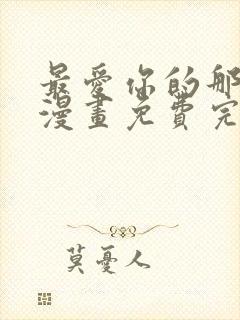 最愛你的那
漫畫免費完
莫憂人